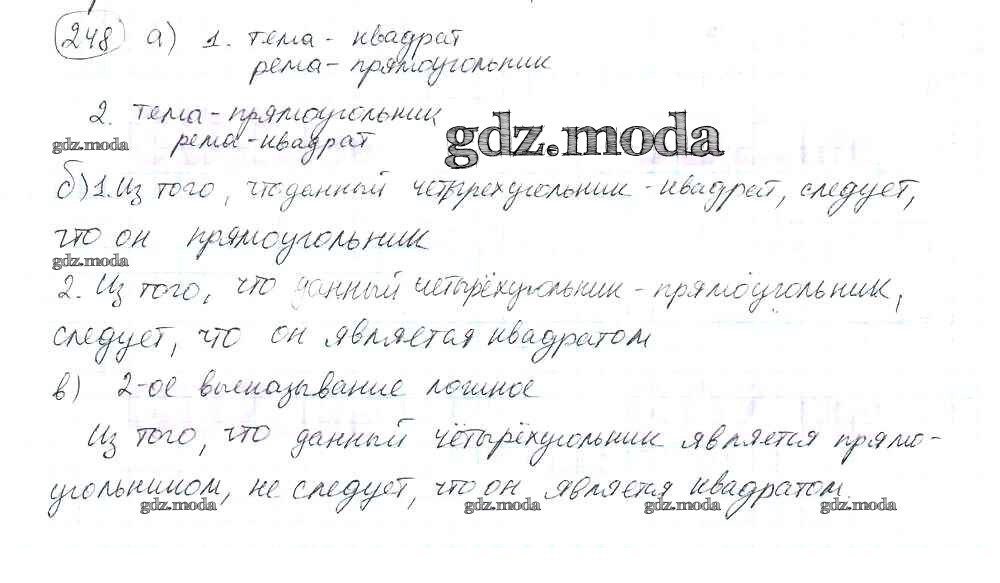 248 а) 1. тема - квадрат
рема - прямоугольник
2. тема - прямоугольник
gdz.moda
рема - квадрат
gdz.moda
б) 1. Из того, что данный четырехугольник - квадрат, следует,
что он прямоугольник
gdz.moda
2. Из того, что данный четырёхугольник - прямоугольник,
следует, что он является квадратом
в) 2-ое высказывание ложное
Из того, что данный четырёхугольник является прямо-
угольником, не следует, что он является квадратом.
gdz.moda gdz.moda gdz.moda gdz.moda